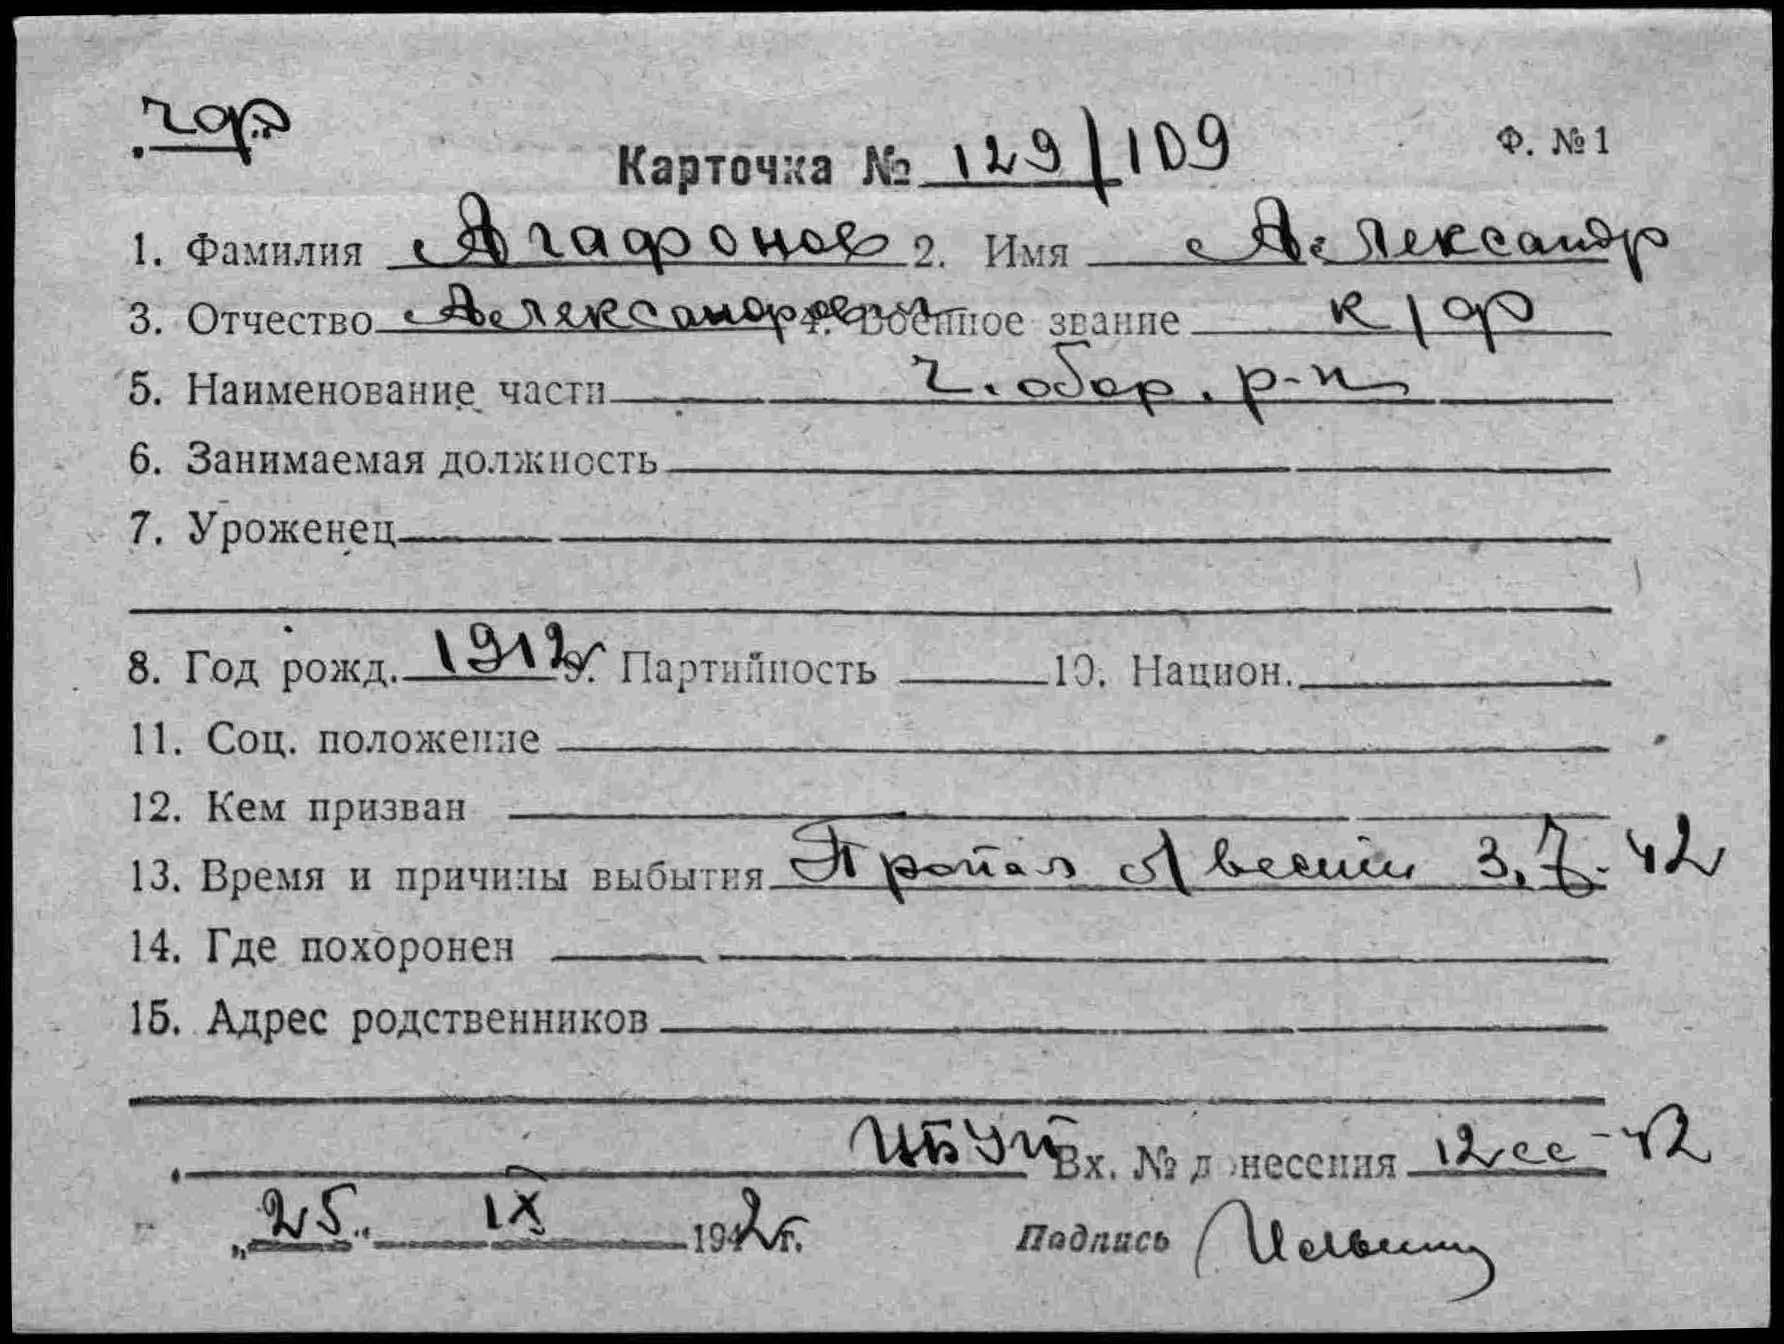 чф
Карточка № 129/109
Ф. № 1
1. Фамилия Агафонов 2. Имя Александр
3. Отчество Александрович 4. Военное звание к/ф
5. Наименование части г. обор. р-н
6. Занимаемая должность
7. Уроженец
8. Год рожд. 1912г. 9. Партийность 10. Национ.
11. Соц. положение
12. Кем призван
13. Время и причины выбытия Пропал вести 3.7.42
14. Где похоронен
15. Адрес родственников
Вх. № донесения 12сс-42
„25" IX 1942г. Подпись